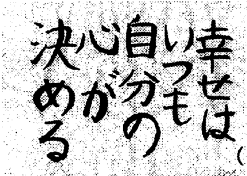 幸せは
いつも
自分の
心が
決める